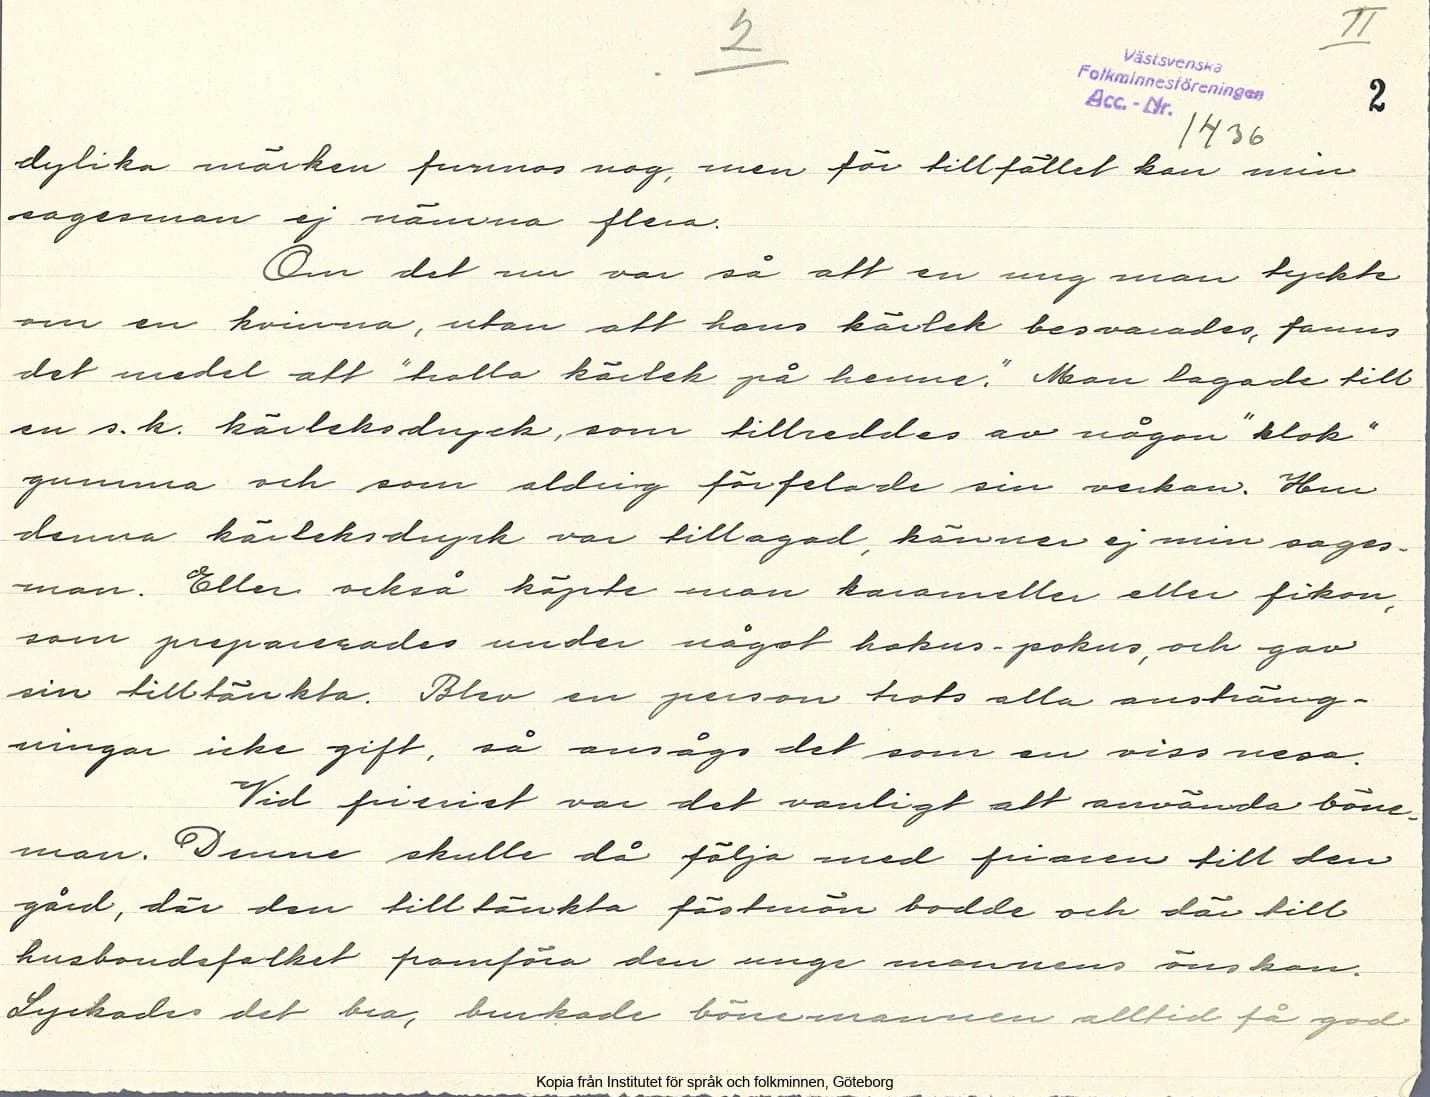 2
II
Västsvenska
Folkminnesföreningen
Acc. - Nr.
1436
2
dylika märken funnos nog, men för tillfället kan min
sagesman ej nämna flera.
Om det nu var så att en ung man tyckte
om en kvinna, utan att hans kärlek besvarades, fanns
det medel att "trolla kärlek på henne". Man lagade till
en s.k. kärleksdryck, som tillreddes av någon "klok"
gumma och som aldrig förfelade sin verkan. Hur
denna kärleksdryck var tillagad, känner ej min sages-
man. Eller också köpte man karameller eller fikon,
som preparerades under något hokus-pokus, och gav
sin tilltänkta. Blev en person trots alla ansträng-
ningar icke gift, så ansågs det som en viss nesa.
Vid frieriet var det vanligt att använda böne-
man. Denne skulle då följa med friaren till den
gård, där den tilltänkta fästmön bodde och där till
husbondefolket framföra den unge mannens önskan.
Lyckades det bra, brukade bönemannen alltid få god
Kopia från Institutet för språk och folkminnen, Göteborg